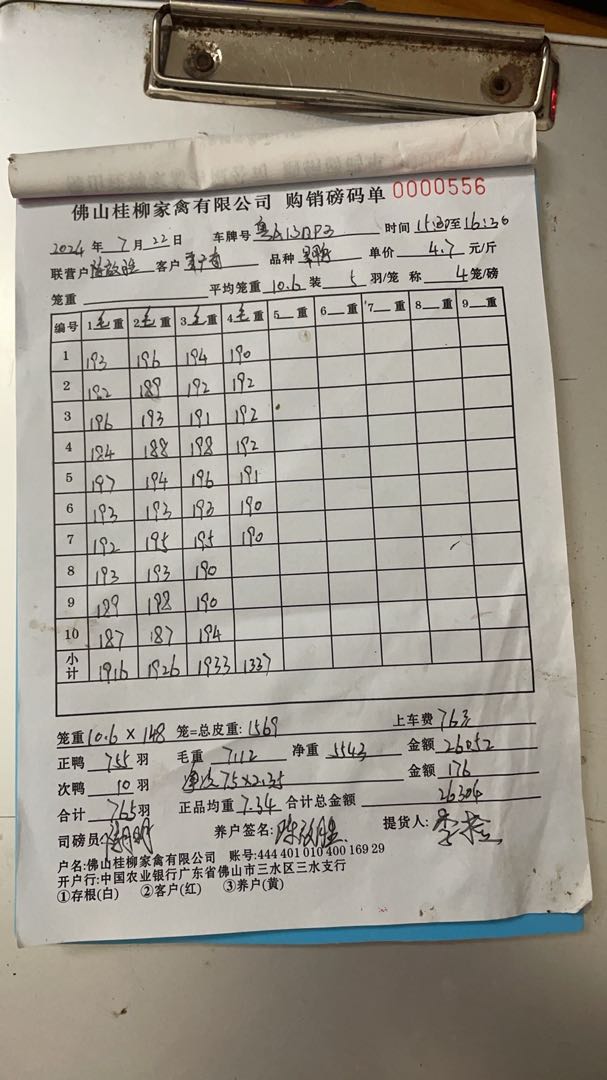 佛山桂柳家禽有限公司 购销磅码单 0000556
2024 年 7 月 22 日 车牌号 时间 15:30至16:30
联营户 客户 品种 单价 4.7 元/斤
笼重 平均笼重 10.6 装 5 羽/笼 称 4 笼/磅
编号 1毛重 2毛重 3毛重 4毛重 5__重 6__重 7__重 8__重 9__重
1 193 196 194 190
2 192 189 192 192
3 196 193 191 192
4 184 188 198 192
5 197 194 196 191
6 193 193 193 190
7 192 195 195 190
8 193 193 190
9 189 198 190
10 187 187 194
小计 1916 1926 1933 1337
笼重10.6 × 148 笼=总皮重:1569 上车费 763
正鸭 755 羽 毛重 7112 净重 5543 金额 26052
次鸭 10 羽 75×2.35 金额 176
合计 765羽 正品均重 7.34 合计总金额 26304
司磅员 养户签名: 提货人:
户名:佛山桂柳家禽有限公司 账号:444 401 010 400 169 29
开户行:中国农业银行广东省佛山市三水区三水支行
①存根(白) ②客户(红) ③养户(黄)